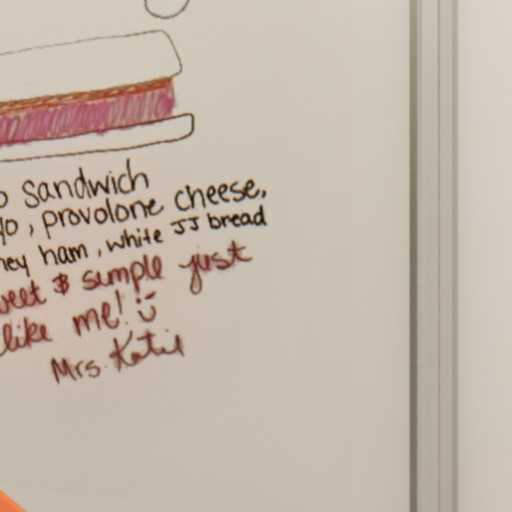 sandwich
, provolone cheese,
ham, white JJ bread
& simple just
like me! :)
Mrs. Katie